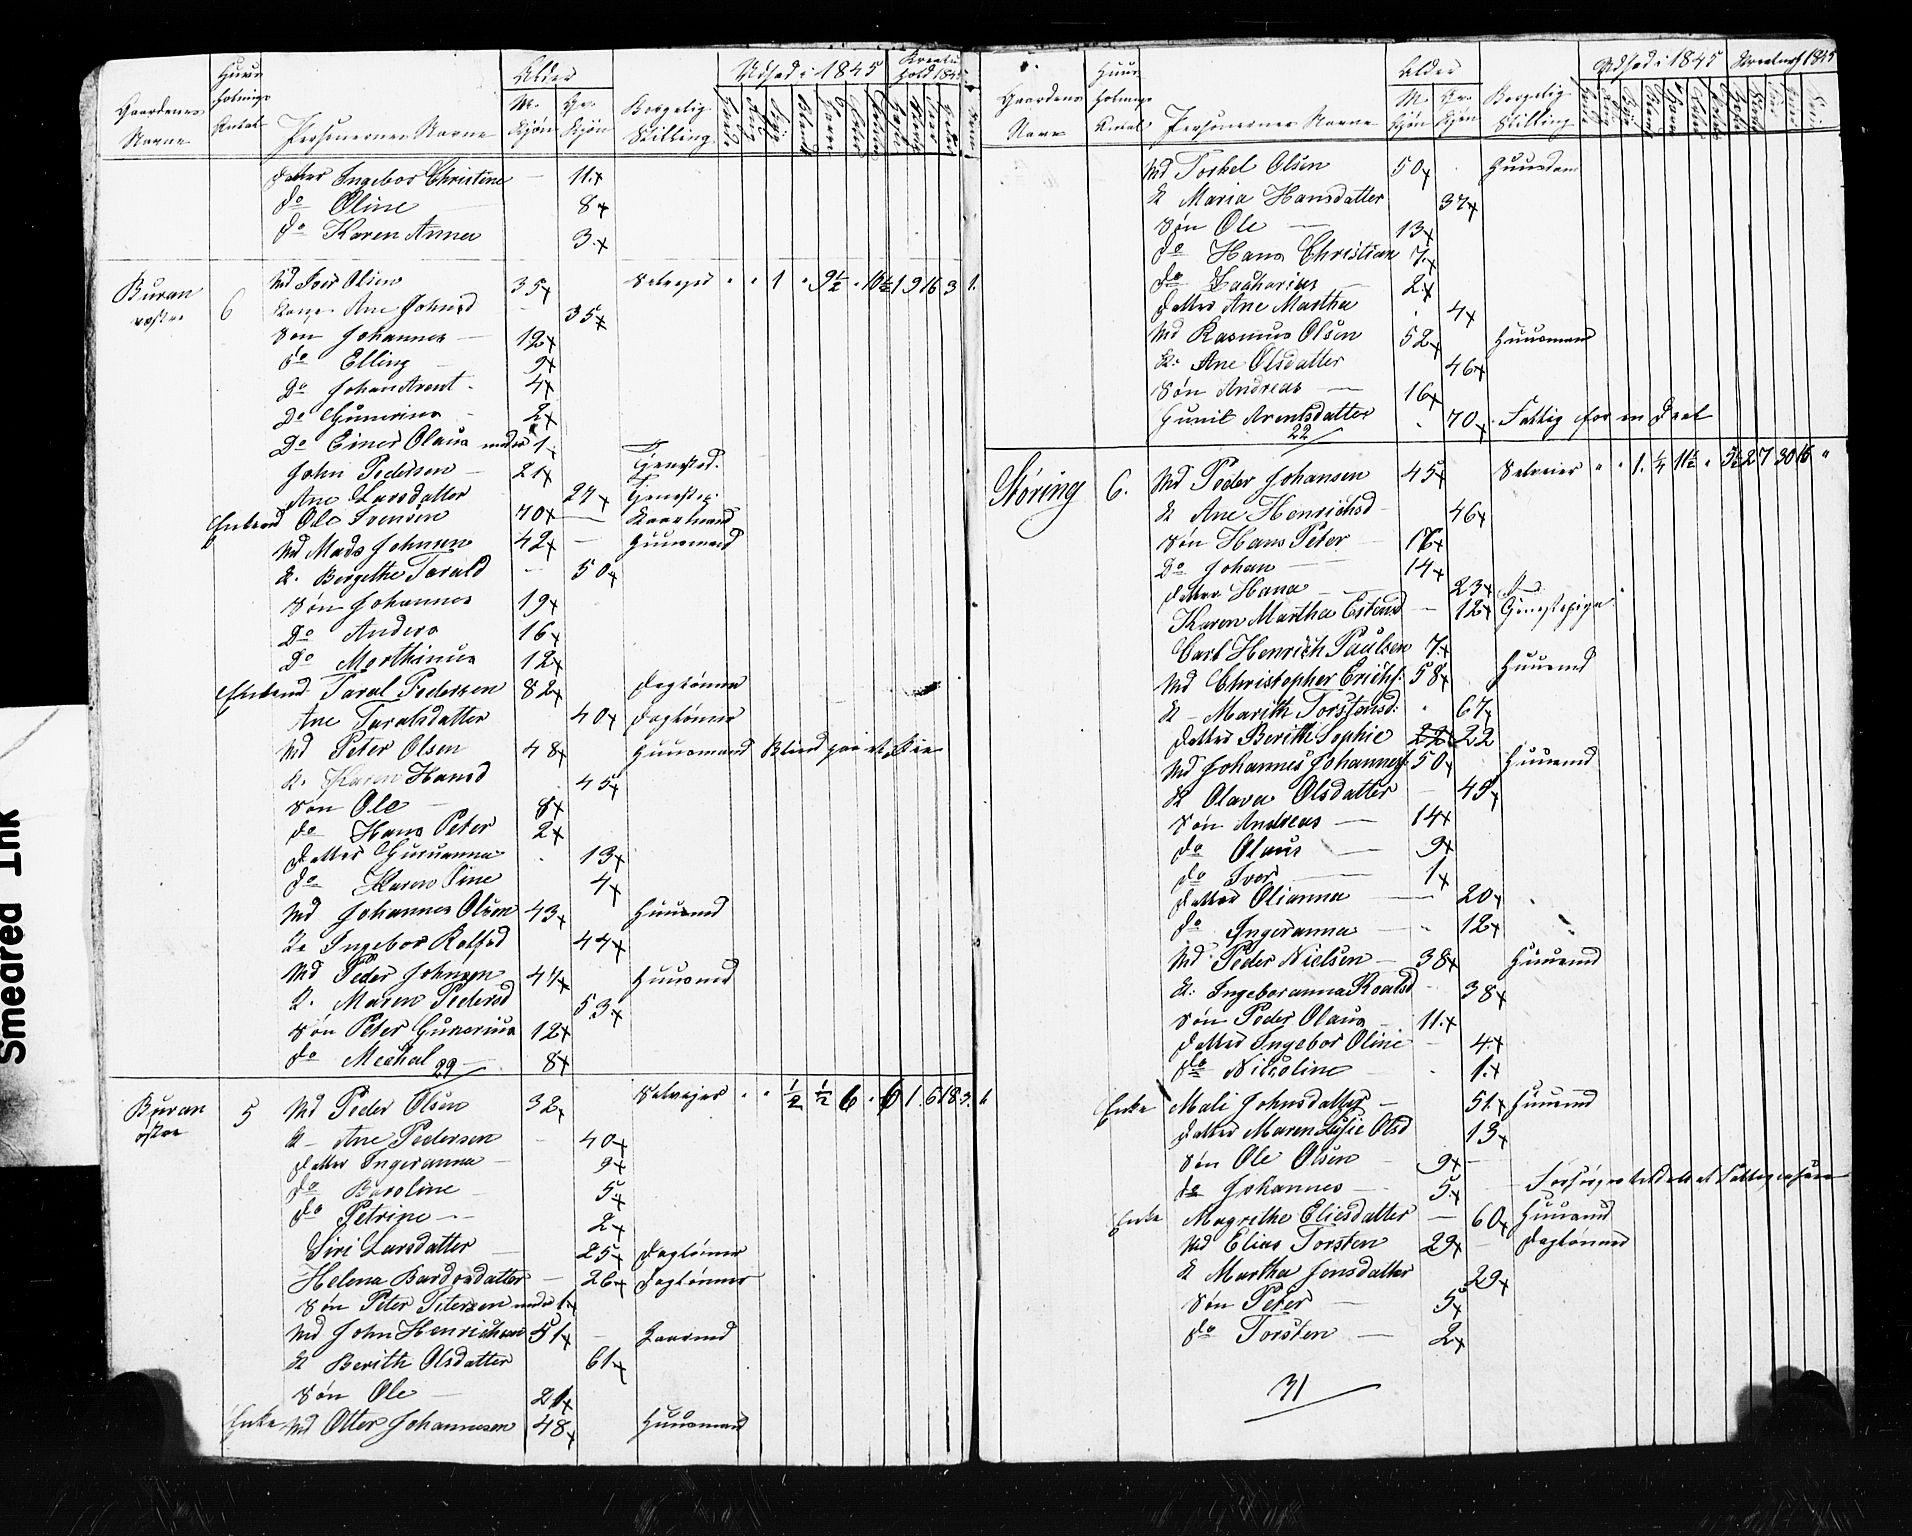 Gaardenes Navne
Huus holnings Antal
Personernes Navne
Alder
M. Kjøn
Qv. Kjøn
Borgelig Stilling
Udsæd i 1845
Datter Ingebor Christine - 11
do Oline 8
do Karen Anna 3
Buran vestre 6 Md Iver Olsen 35 Selvejer " " 1 " 9½ " 16½ 1 9 16 3 1
Kone Ane Johnsd 35
Søn Johannes 12
do Elling 9
Do Johan Arent 4
Do Gunerius 2
Do Einer Olaus under 1
John Pedersen 21 Tjenested.
Ane Larsdatter 27 Tjenestep:
Enkemd Ole Svensen 70 Kaarmand
Md Mads Johnsen 42 Huusmand
K. Bergethe Tarald 50
Søn Johannes 19
Do Anders 16
Do Morthinus 12
Enkemd Taral Pedersen 82 Daglønner
Ane Taralsdatter 40 Daglønner
Md Peter Olsen 48 Huusmand Blind paa et Øie
K. Karen Hansd 45
Søn Ole 8
do Hans Peter 2
Datter Guruanna 13
do Karen Sine 4
Md Johannes Olsen 43 Huusmd
K. Ingebor Rolfsd 44
Md Peder Johnsen 44 Huusmd
K. Maren Pedersd 53
Søn Peter Gunerius 12
do Mechal 8
29
Buran østre 5 Md Peder Olsen 32 Selvejer " " ½ ½ 6 " 6 1 6 18 3 1
K - Ane Pedersen 40
Datter Ingeranna 9
do Baroline 5
do Petrine 2
Siri Larsdatter 25 Daglønner
Helena Bardosdatter 26 Daglønner
Søn Peter Petersen under 1
Md John Henrichsen 51 Kaarmd
K Berith Olsdatter 61
Søn Ole 21
Enke Md Otter Johannesen 48 Huusmand
Gaardens Navn
Huus holnings Antal
Personernes Navne
Alder
M. Kjøn
Qv. Kjøn
Borgelig Stilling
Udsæd i 1845
Kreaturh 1845
Md Torkel Olsen 50 Huusman
K Maria Hansdatter 37
Søn Ole 13
do Hans Christian 7
do Zacharias 2
Datter Ane Martha 4
Md Rasmus Olsen 52 Huusmand
K. Ane Olsdatter 46
Søn Andreas 16
Gunil Arentsdatter 70 Fattig for en Deel
22
Støring 6. Md Peder Johansen 45 Selveier " " 1. ¼ 11½ " 5½ 2 7 30 16 "
K Ane Henrichsd 46
Søn Hans Peter 17
Do Johan 14
Datter Hana 23
Karen Martha Estensd 12 Tjenestepige
Carl Henrich Paulsen 7
Md Christopher Erichs: 58 Huusmd
K - Marith Torstensd: 67
Datter Berith Sophie 22 22
Md Johannes Johannes: 50 Huusmd
K Olava Olsdatter 45
Søn Andreas 14
do Olaus 9
do Iver 1
Datter Olianna 20
do Ingeranna 12
Md Peder Nielsen 38 Huusmd
K: Ingeboranna Roalsd 38
Søn Peder Olaus 11
Datter Ingebor Oline 4
do Nicoline 1
Enke Mali Johnsdatter 51 Huusmd
Datter Maren Lysie Olsd 13
Søn Ole Olsen 9
do Johannes 5
Enke Magrethe Eliesdatter 60 Huusmd
Md Elias Torsten 29 Daglønner
K Martha Jensdatter 29
Søn Peter 5
do Torsten 2
31
Smeared Ink